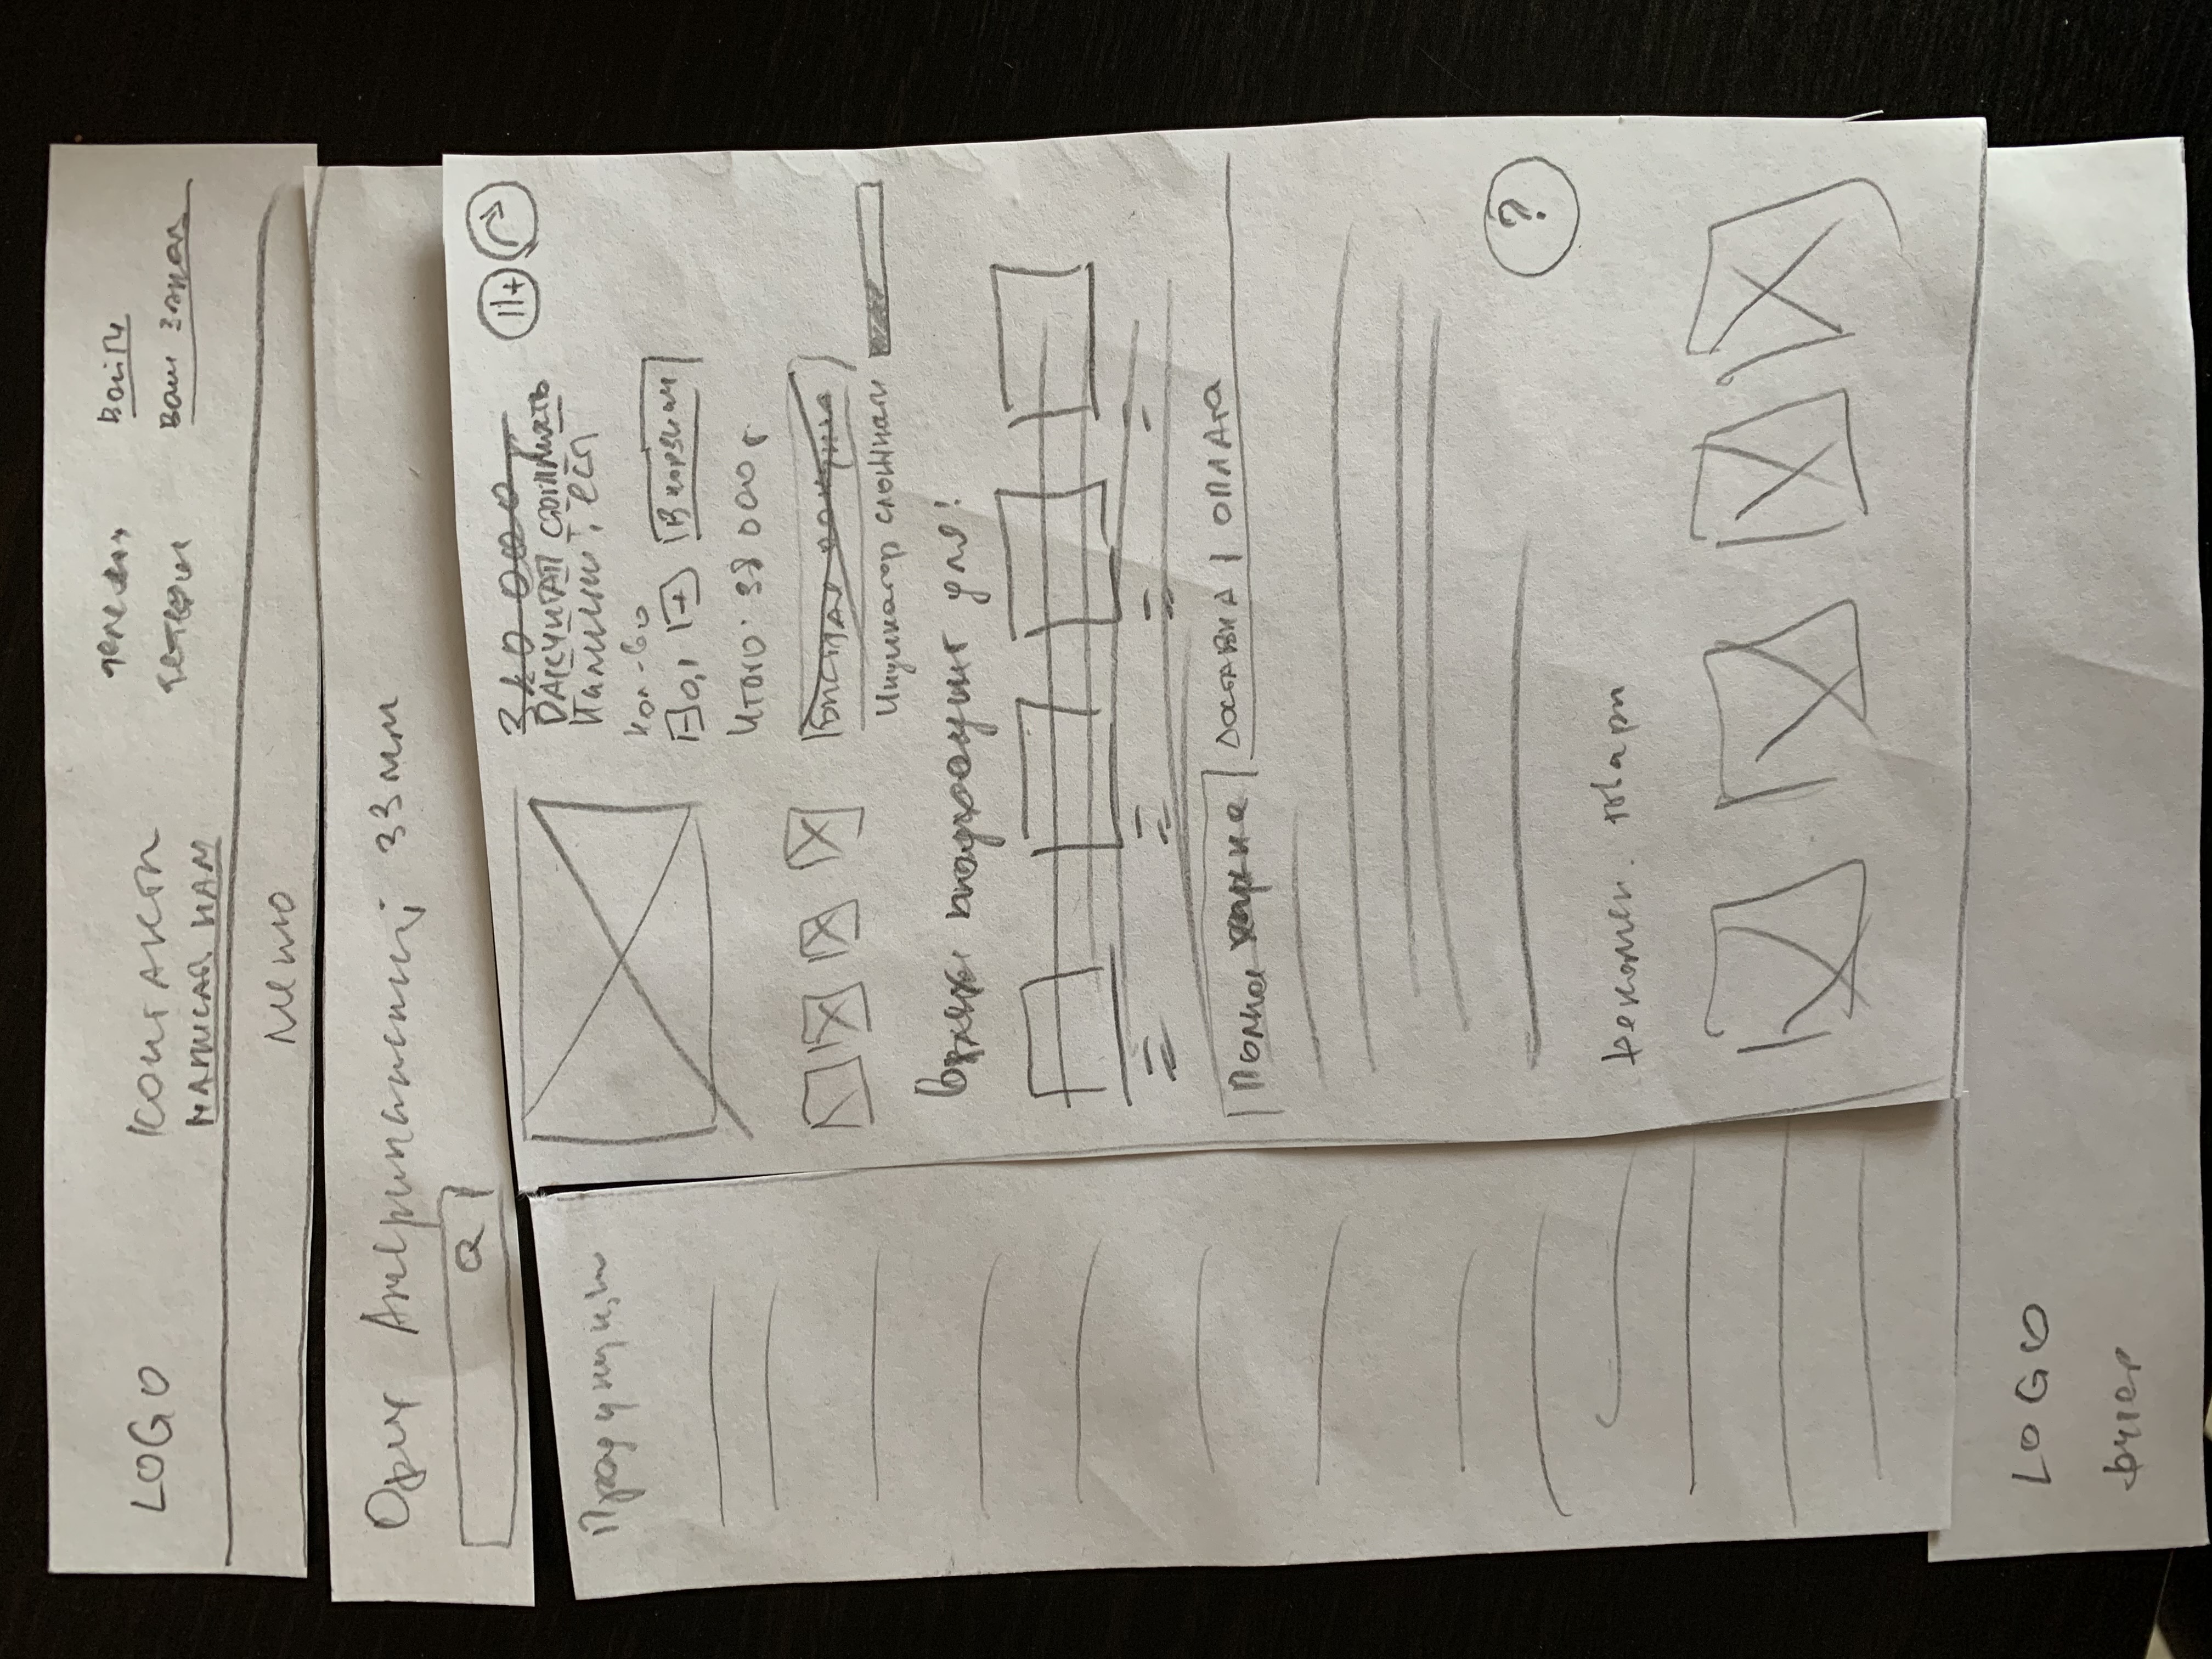 LOGO
Контакты
написать нам
телефон
Войти
Ваш заказ
Меню
Орех Американский 33 мм
Продукция
320 000
Рассчитать стоимость
Наличие: есть
Кол-во
- 0,1 + В корзину
Итого: 38 000 г.
Быстрая покупка
Индикатор сложности
подходит для:
Полная
Доставка | оплата
?
Рекомен. товары
LOGO
футер